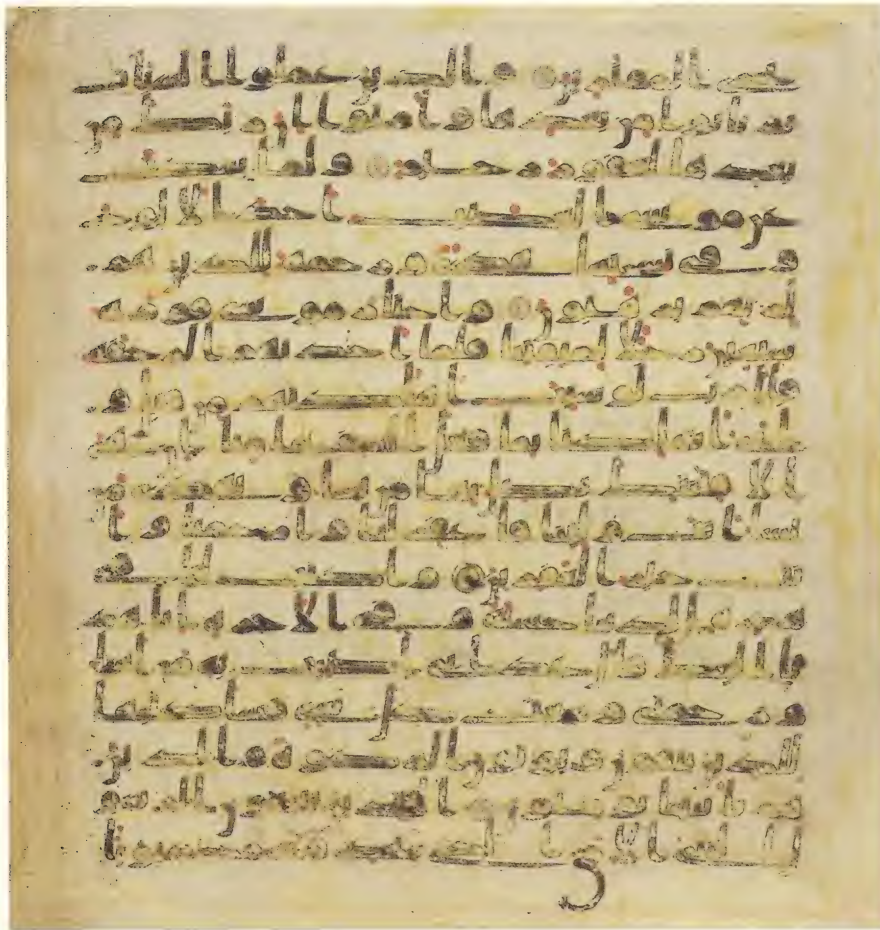 نجزى المفترين والذين عملوا السيات
ثم تابوا من بعدها وامنوا ان ربك من
بعدها لغفور رحيم ولما سكت
عن موسى الغضب اخذ الالواح
وفى نسختها هدى ورحمة للذين هم
لربهم يرهبون واختار موسى قومه
سبعين رجلا لميقتنا فلما اخذتهم الرجفة
قال رب لو شئت اهلكتهم من قبل و
اياى اتهلكنا بما فعل السفها منا ان هى
الا فتنتك تضل بها من تشا وتهدى من
تشا انت ولينا فاغفر لنا وارحمنا وا
نت خير الغفرين واكتب لنا فى
هذه الدنيا حسنة وفى الاخرة انا هدنا
اليك قال عذابى اصيب به من اشا
ورحمتى وسعت كل شى فساكتبها
للذين يتقون ويوتون الزكوة والذين
هم بايتنا يومنون الذين يتبعون الرسو
ل النبى الامى الذى يجدونه مكتوبا